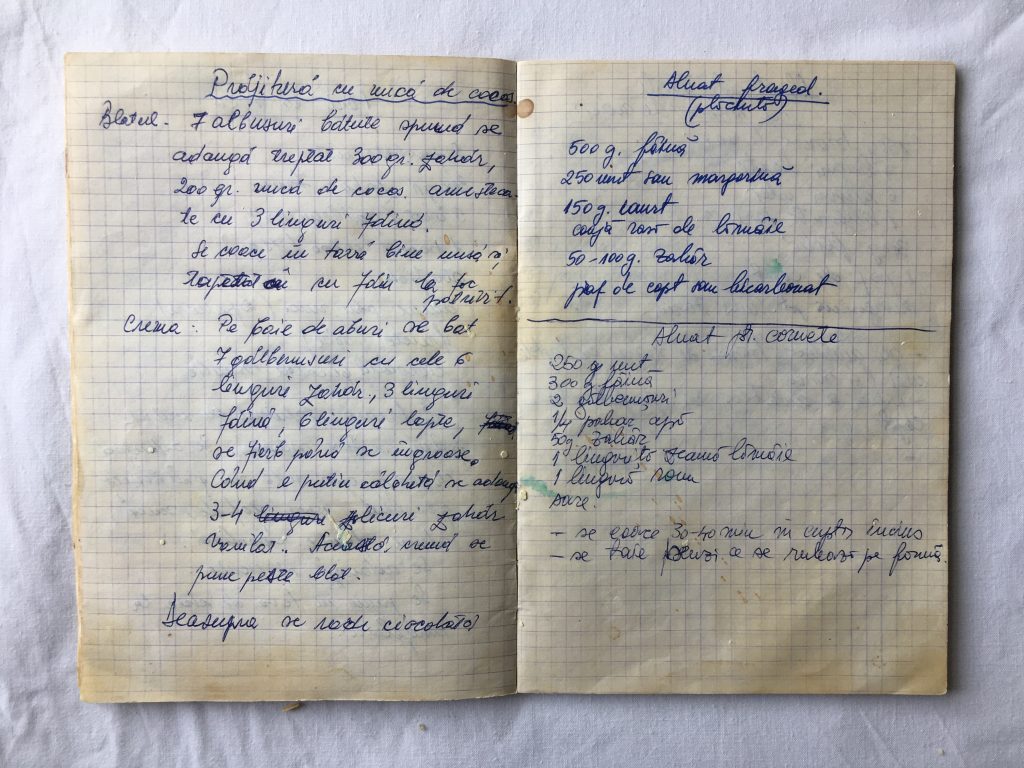 Prăjitură cu nucă de cocos.
Blatul - 7 albușuri bătute spumă se
adaugă treptat 300 gr. zahăr,
200 gr. nucă de cocos amesteca-
te cu 3 linguri făină.
Se coace în tavă bine unsă și
cu făină la foc
potrivit.
Crema: Pe baie de aburi se bat
7 gălbenușuri cu cele 6
linguri zahăr, 3 linguri
făină, 6 linguri lapte,
se fierb până se îngroașe.
Când e puțin călduță se adaugă
3-4 plicuri zahăr
Vanilat. Această cremă se
pune peste blat.
Deasupra se rade ciocolată
Aluat fraged.
(plăcintă)
500 g. făină
250 unt sau margarină
150 g. iaurt
coajă rasă de lămâie
50-100 g. zahăr
praf de copt sau bicarbonat
Aluat pt. cornete
250 g unt
300 g făină
2 gălbenușuri
1/4 pahar apă
50g. zahăr
1 linguriță zeamă lămâie
1 lingură rom
sare.
- se coace 30-40 min în cuptor încins
- se taie ce se rulează pe formă